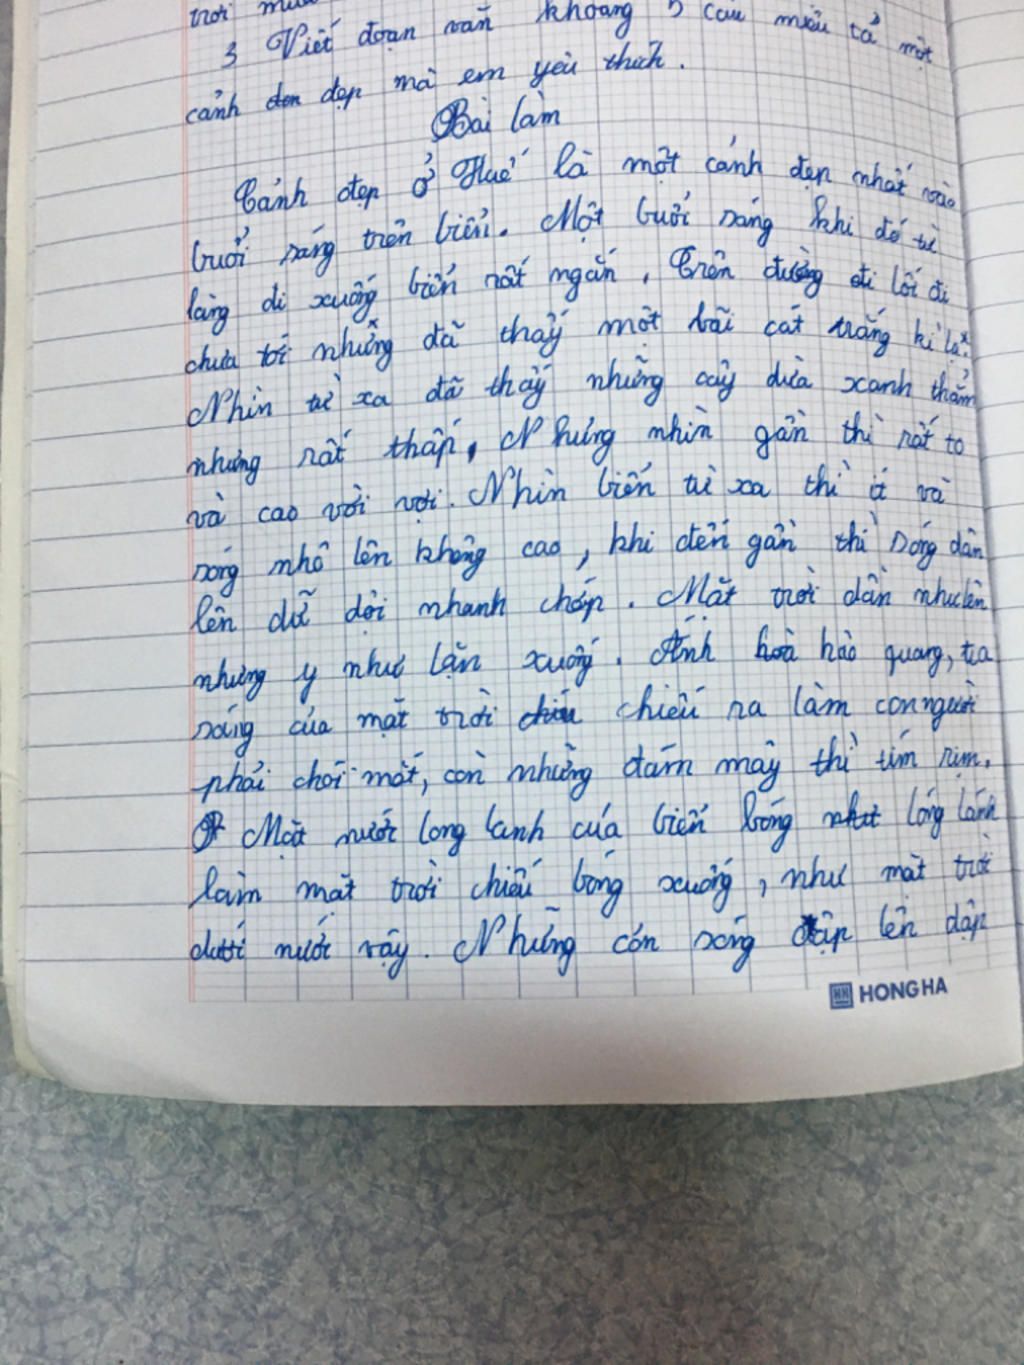 trời
3 Viết đoạn văn khoảng 5 câu miêu tả một
cảnh đẹp mà em yêu thích.
Bài làm
Cảnh đẹp ở Huế là một cảnh đẹp nhất vào
buổi sáng trên biển. Một buổi sáng khi đó từ
làng di xuống biển rất ngắn, Trên đường đi lối đi
chưa tới nhưng đã thấy một bãi cát trắng kì lạ.
Nhìn từ xa đã thấy những cây dừa xanh thẳm
nhưng rất thấp, Nhưng nhìn gần thì rất to
và cao vời vợi. Nhìn biển từ xa thì ít và
sóng nhô lên không cao, khi đến gần thì sóng dân
lên dữ dội nhanh chóp. Mặt trời dần như lên
nhưng y như lặn xuống. Ánh hào quang, tia
sáng của mặt trời chiếu ra làm con người
phải chói mắt, còn những đám mây thì tím rịm.
Mặt nước long lanh của biển bóng lóng lánh
làm mặt trời chiếu bóng xuống, như mặt trời
dưới nước vậy. Những cón sóng dập lên dập
HONG HA